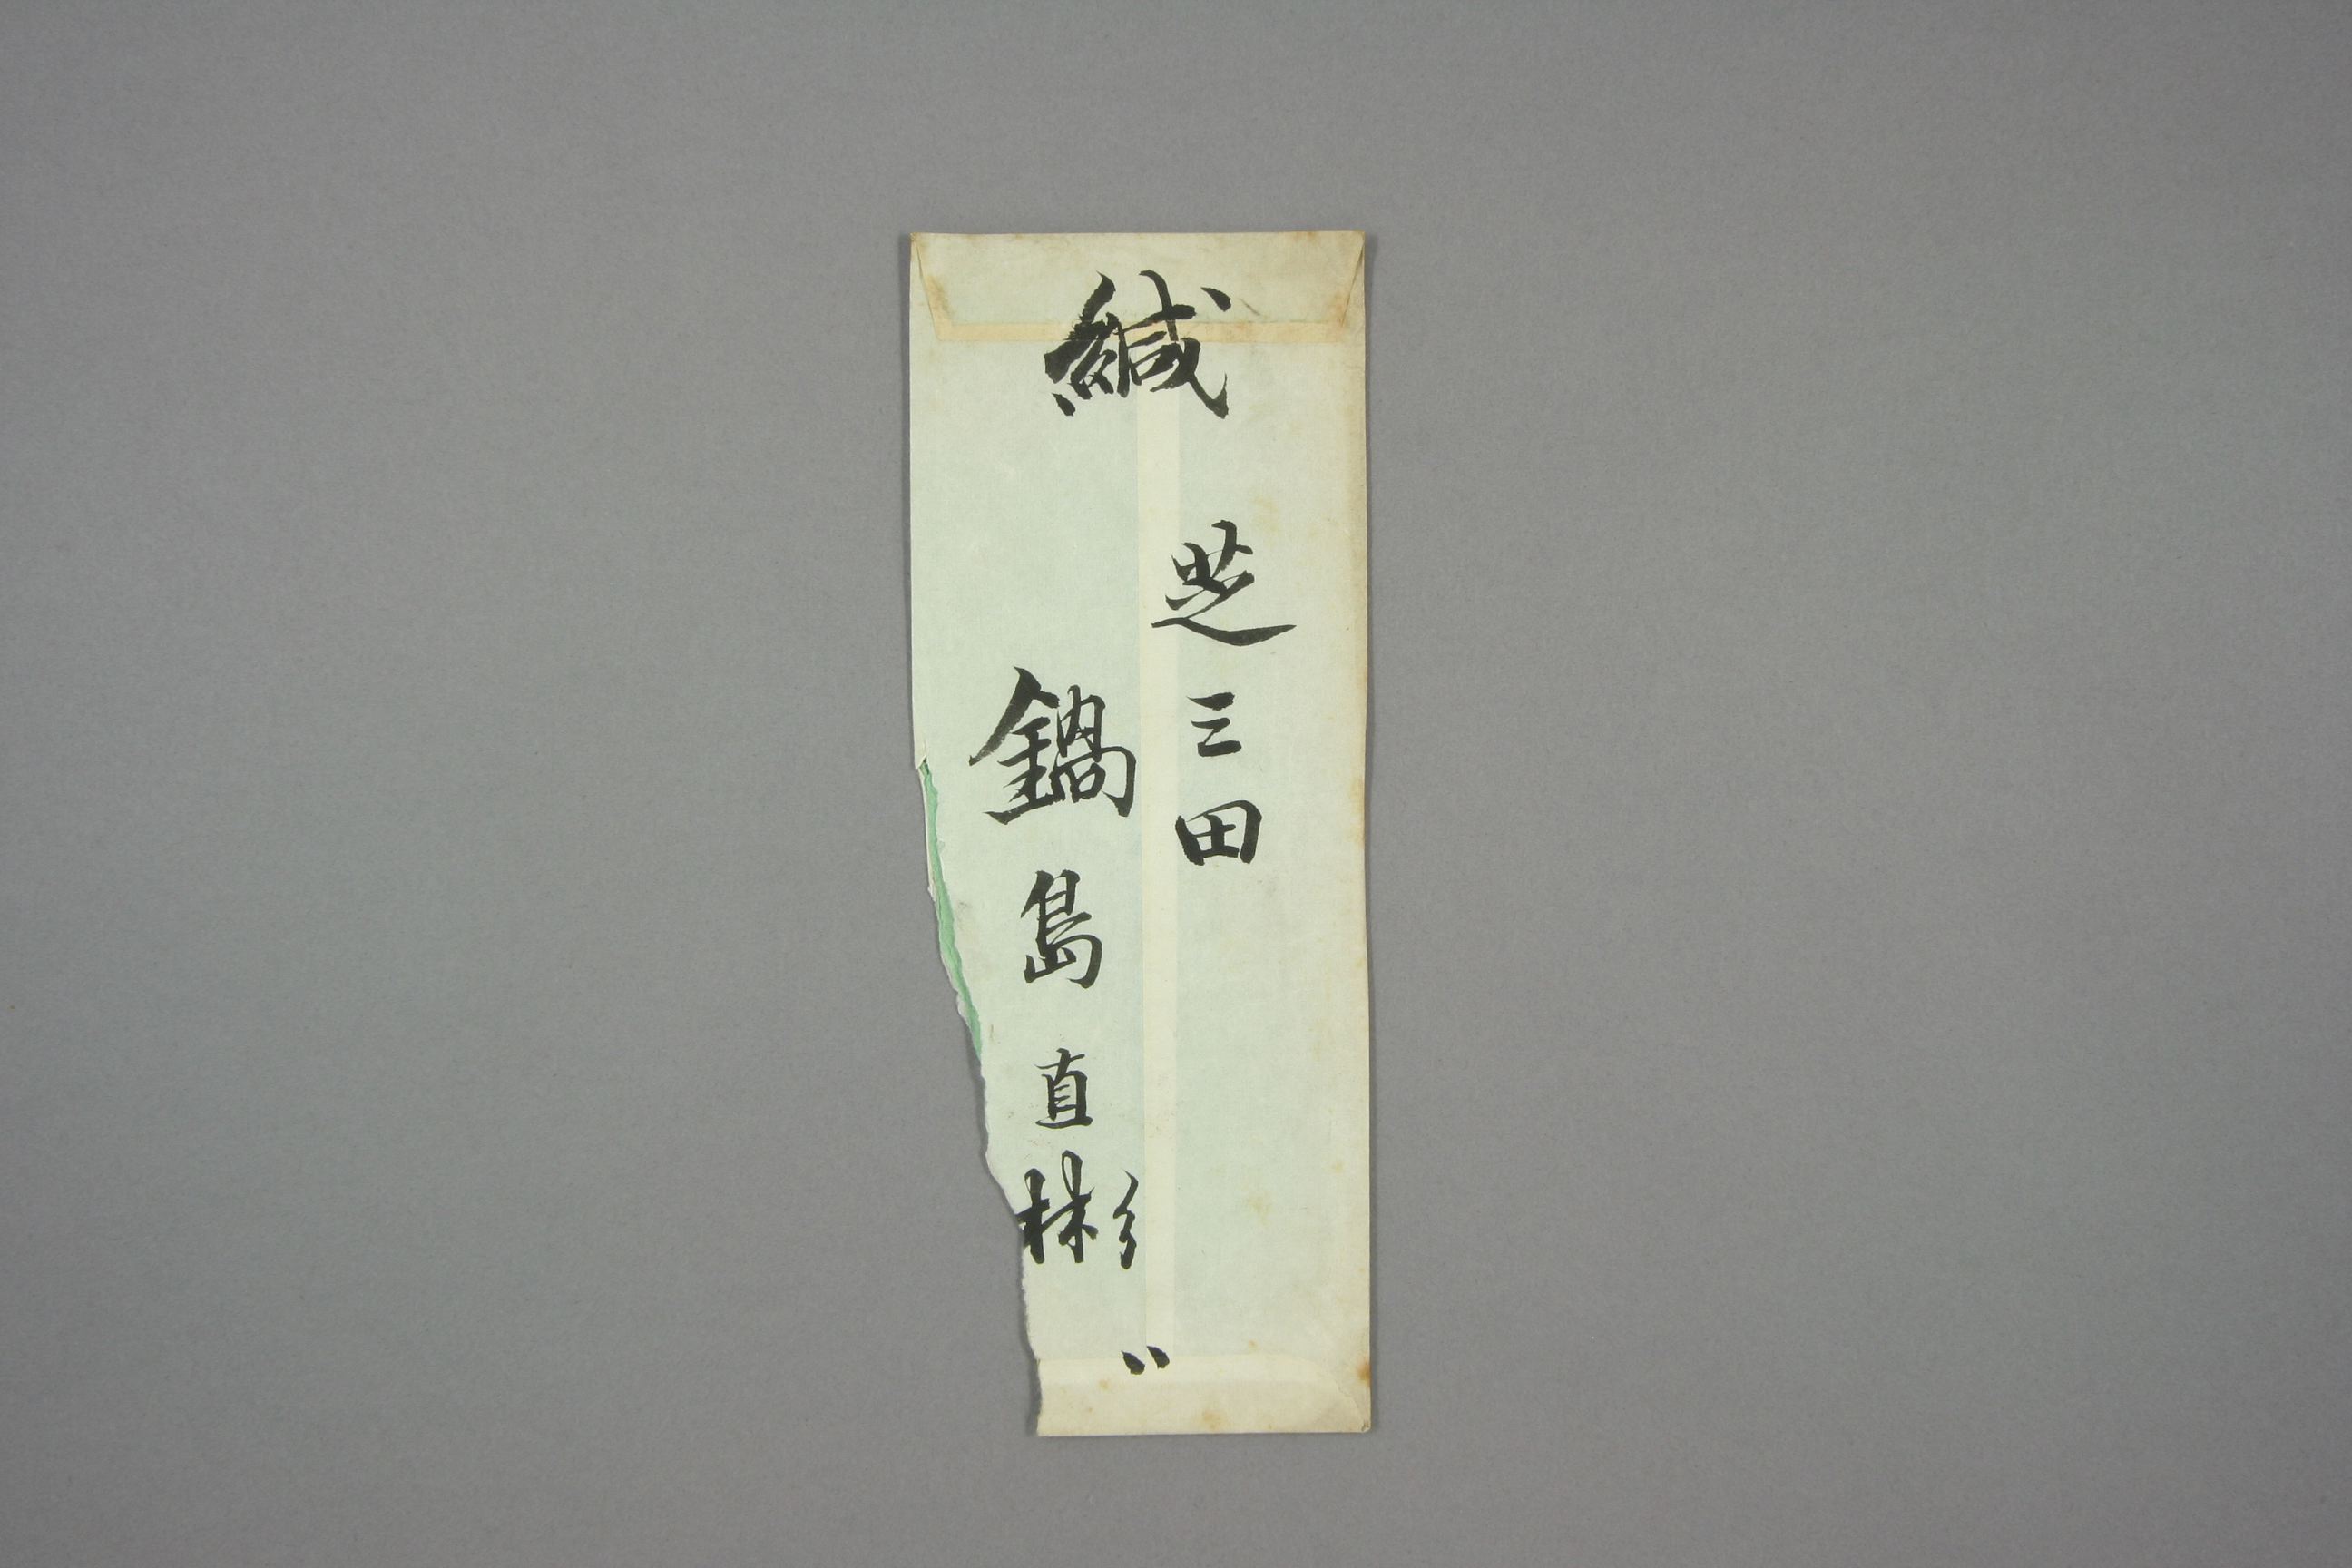 緘
芝三田
鍋島直彬
〃